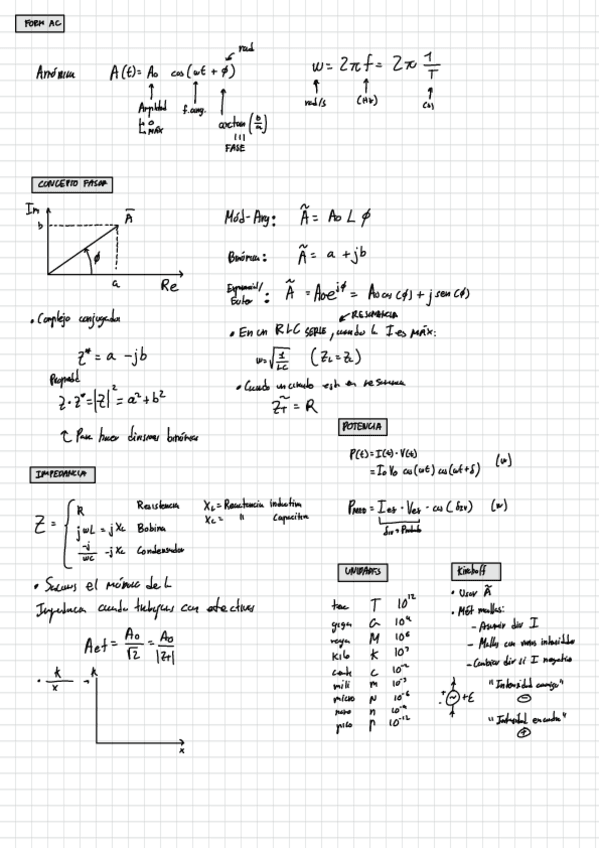 FORM AC
Armónica A(t) = A₀ cos(ωt + φ)
rad
Amplitud
0
MÁX
f. ang.
arctan (b/a)
FASE
ω = 2πf = 2π 1/T
rad/s (Hz) (s)
CONCEPTO FASOR
Im
b
Ā
φ
a
Re
Mód-Arg: Ã = A₀ ∟ φ
Binómica: Ã = a + jb
Exponencial/
Euler: Ã = A₀e^jφ = A₀ cos(φ) + j sen(φ)
• Complejo conjugado
z* = a - jb
Propiedad
z · z* = |z|² = a² + b²
↑ Para hacer divisiones binómicas
RESONANCIA
• En un RLC SERIE, cuando L I es MÁX:
ω = √1/LC (Z_L = Z_c)
• Cuando un circuito está en resonancia
Z̃_T = R
POTENCIA
P(t) = I(t) · V(t)
= I₀ V₀ cos(ωt) cos(ωt + δ) (w)
P_MED = I_ef · V_ef · cos(δ_IV) (w)
IMPEDANCIA
Z =
R Resistencia
jωL = jX_L Bobina
-j/ωC -jX_c Condensador
X_L = Reactancia inductiva
X_c = " Capacitiva
• el módulo de L
Impedancia cuando trabajas con efectivas
A_ef = A₀/√2 = A₀/|Z_T|
• k/x → k
x
UNIDADES
tera T 10¹²
giga G 10⁹
mega M 10⁶
kilo k 10³
centi c 10⁻²
mili m 10⁻³
micro μ 10⁻⁶
nano n 10⁻⁹
pico p 10⁻¹²
Kirchoff
• Usar Ã
• Mét mallas:
- Asumir dir I
- Mallas con
- Cambiar dir si I negativa
+ ~ +E
-
"Intensidad
⊖
"Intensidad
⊕